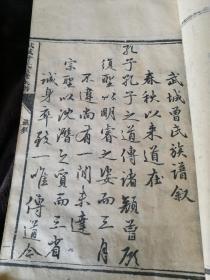 武城曾氏族譜叙
春秋以來道在
孔子孔子之道傳諸顏曾
復聖以明睿之姿而三月
不違尚有一間未達
宗聖以沈潛之質而三省
誠身卒致一唯傳道今